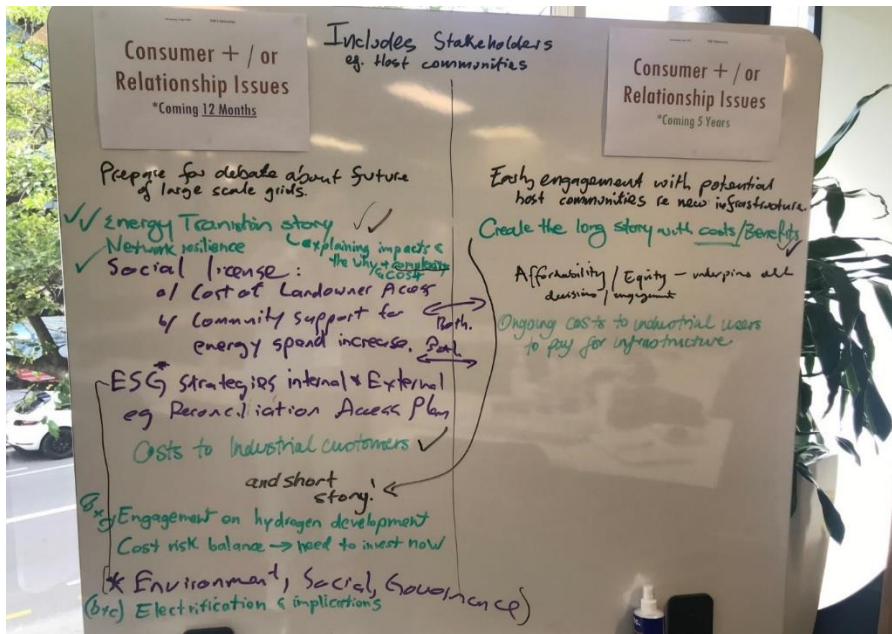 Includes Stakeholders
eg. Host communities
Consumer + / or
Relationship Issues
*Coming 12 Months
Prepare for debate about future
of large scale grids.
Energy Transition story
explaining impacts &
the why + complexity
& cost
Network resilience
Social license:
a/ Cost of Landowner Access
b/ Community support for
energy spend increase.
Both.
Both
ESG* strategies internal & External
eg Reconciliation Access Plan
Costs to Industrial customers
and short
story!
Engagement on hydrogen development
Cost risk balance → need to invest now
* Environment, Social, Governance
(b+c) Electrification & implications
Consumer + / or
Relationship Issues
*Coming 5 Years
Early engagement with potential
host communities re new infrastructure.
Create the long story with costs/Benefits
Affordability / Equity – underpins all
decisions / engagement
Ongoing costs to industrial users
to pay for infrastructure